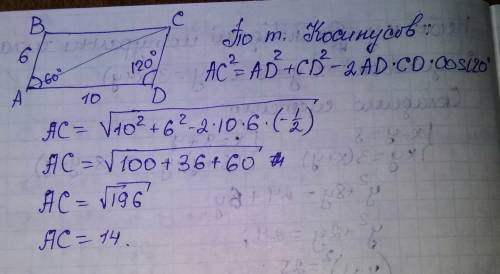 B C
6
60° 120°
A 10 D
По т. Косинусов:
AC² = AD² + CD² − 2AD·CD·cos120°
AC = √(10² + 6² − 2·10·6·(−1/2))
AC = √(100 + 36 + 60)
AC = √196
AC = 14.